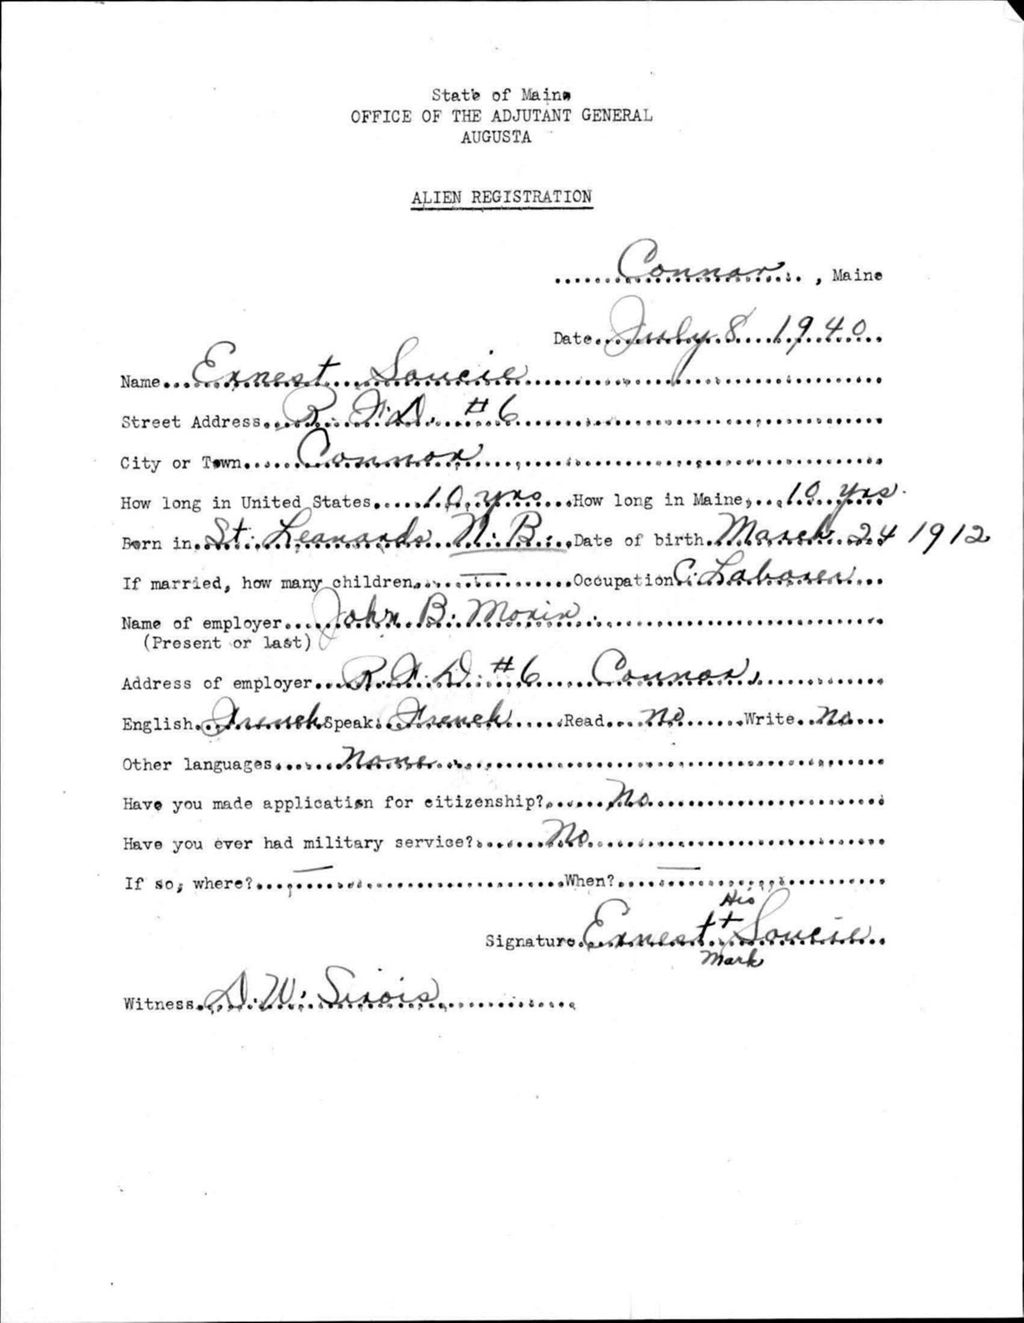 State of Maine
OFFICE OF THE ADJUTANT GENERAL
AUGUSTA
ALIEN REGISTRATION
Connor, Maine
Date July 8 1940
Name Ernest Soucie
Street Address R.F.D. #6
City or Town Connor
How long in United States 10 yrs How long in Maine 10 yrs.
Born in St. Leonards N.B. Date of birth March 24 1912
If married, how many children — Occupation C. Laborer
Name of employer John B. Morin
(Present or last)
Address of employer R.F.D. #6 Connor,
English French Speak French Read No Write No
Other languages None
Have you made application for citizenship? No
Have you ever had military service? No
If so, where? — When? —
His
Signature Ernest + Soucie
Mark
Witness D.W. Sirois